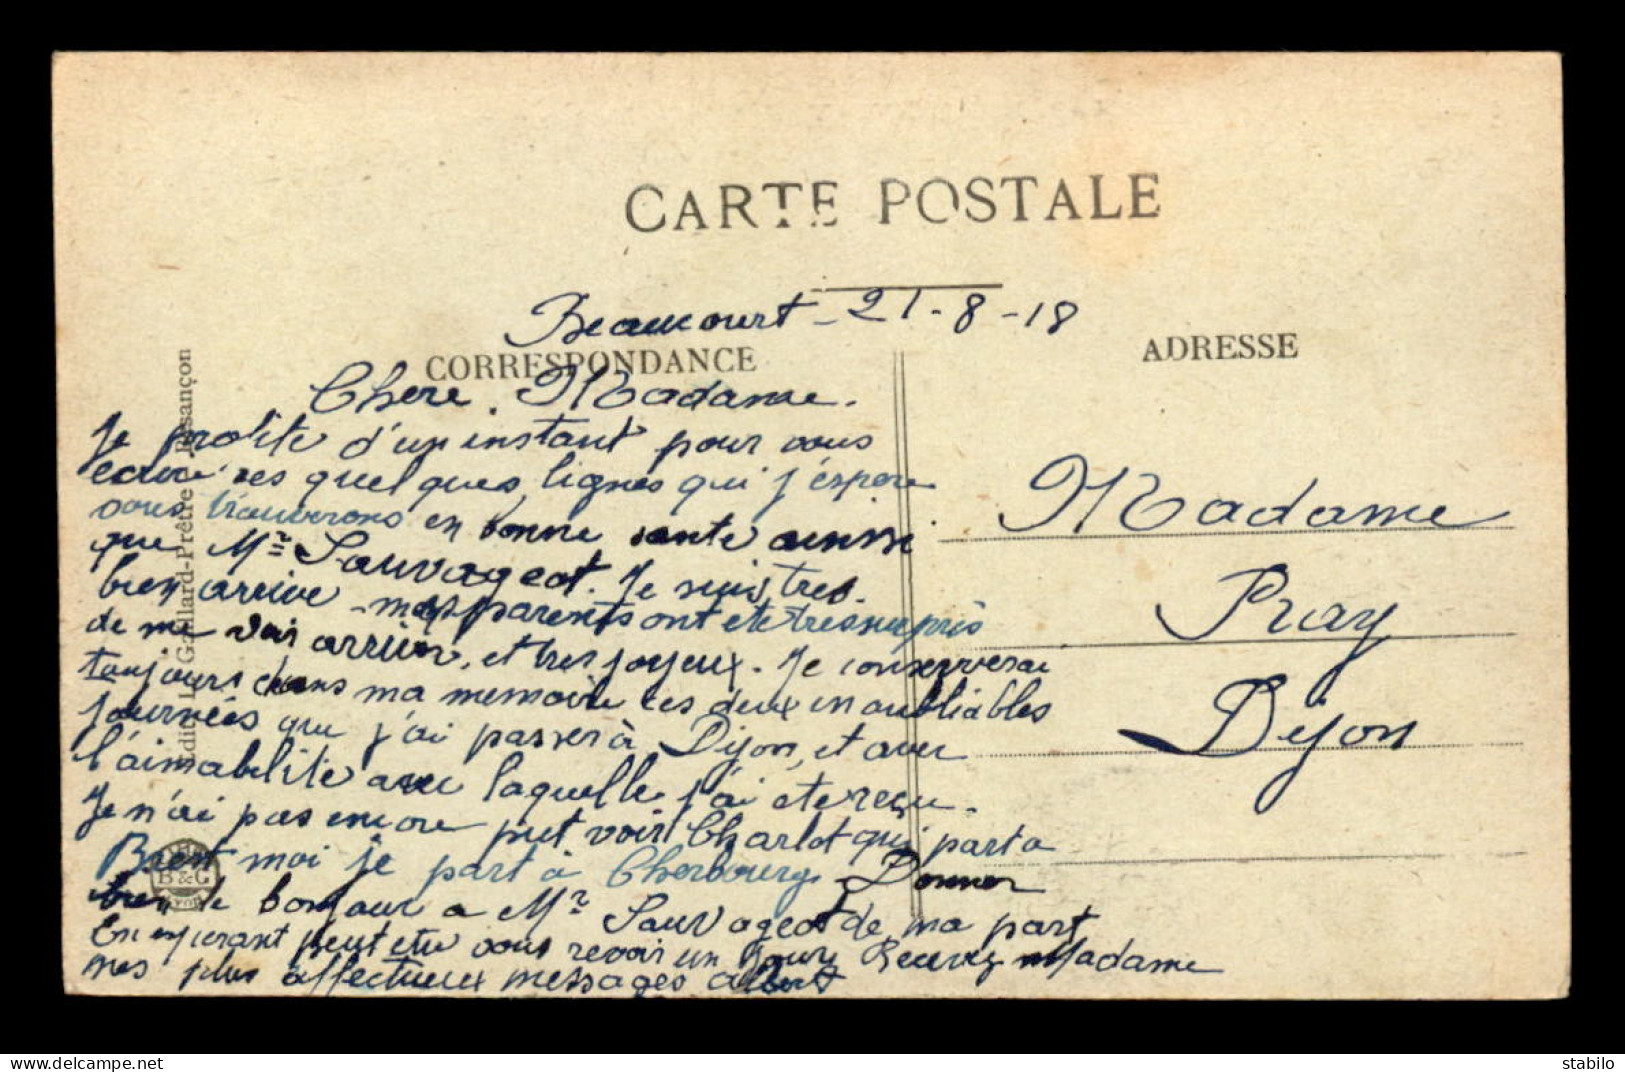 CARTE POSTALE
Beaucourt - 21-8-18
CORRESPONDANCE
ADRESSE
Chere Madame.
Je profite d'un instant pour vous
ecrire ces quelques lignes qui j'espere
vous trouverons en bonne sante ainsi
que Mr Sauvageot. Je suis tres
bien arrive mes parents ont ete tres surpris
de me voir arriver, et tres joyeux. Je conserverai
toujours dans ma memoire ces deux inoubliables
journées que j'ai passer à Dijon, et avec
l'aimabilite avec laquelle j'ai ete reçu.
Je n'ai pas encore put voir Charlot qui part a
Brest moi je part à Cherbourg. Donner
bien le bonjour a Mr Sauvageot de ma part
En esperant peut etre vous revoir un jour, Recevez Madame
mes plus affectueux messages Albert
Madame
Pray
Dijon
Edit. L. Gaillard-Prêtre - Besançon
B & G
delcampe.net
stabilo